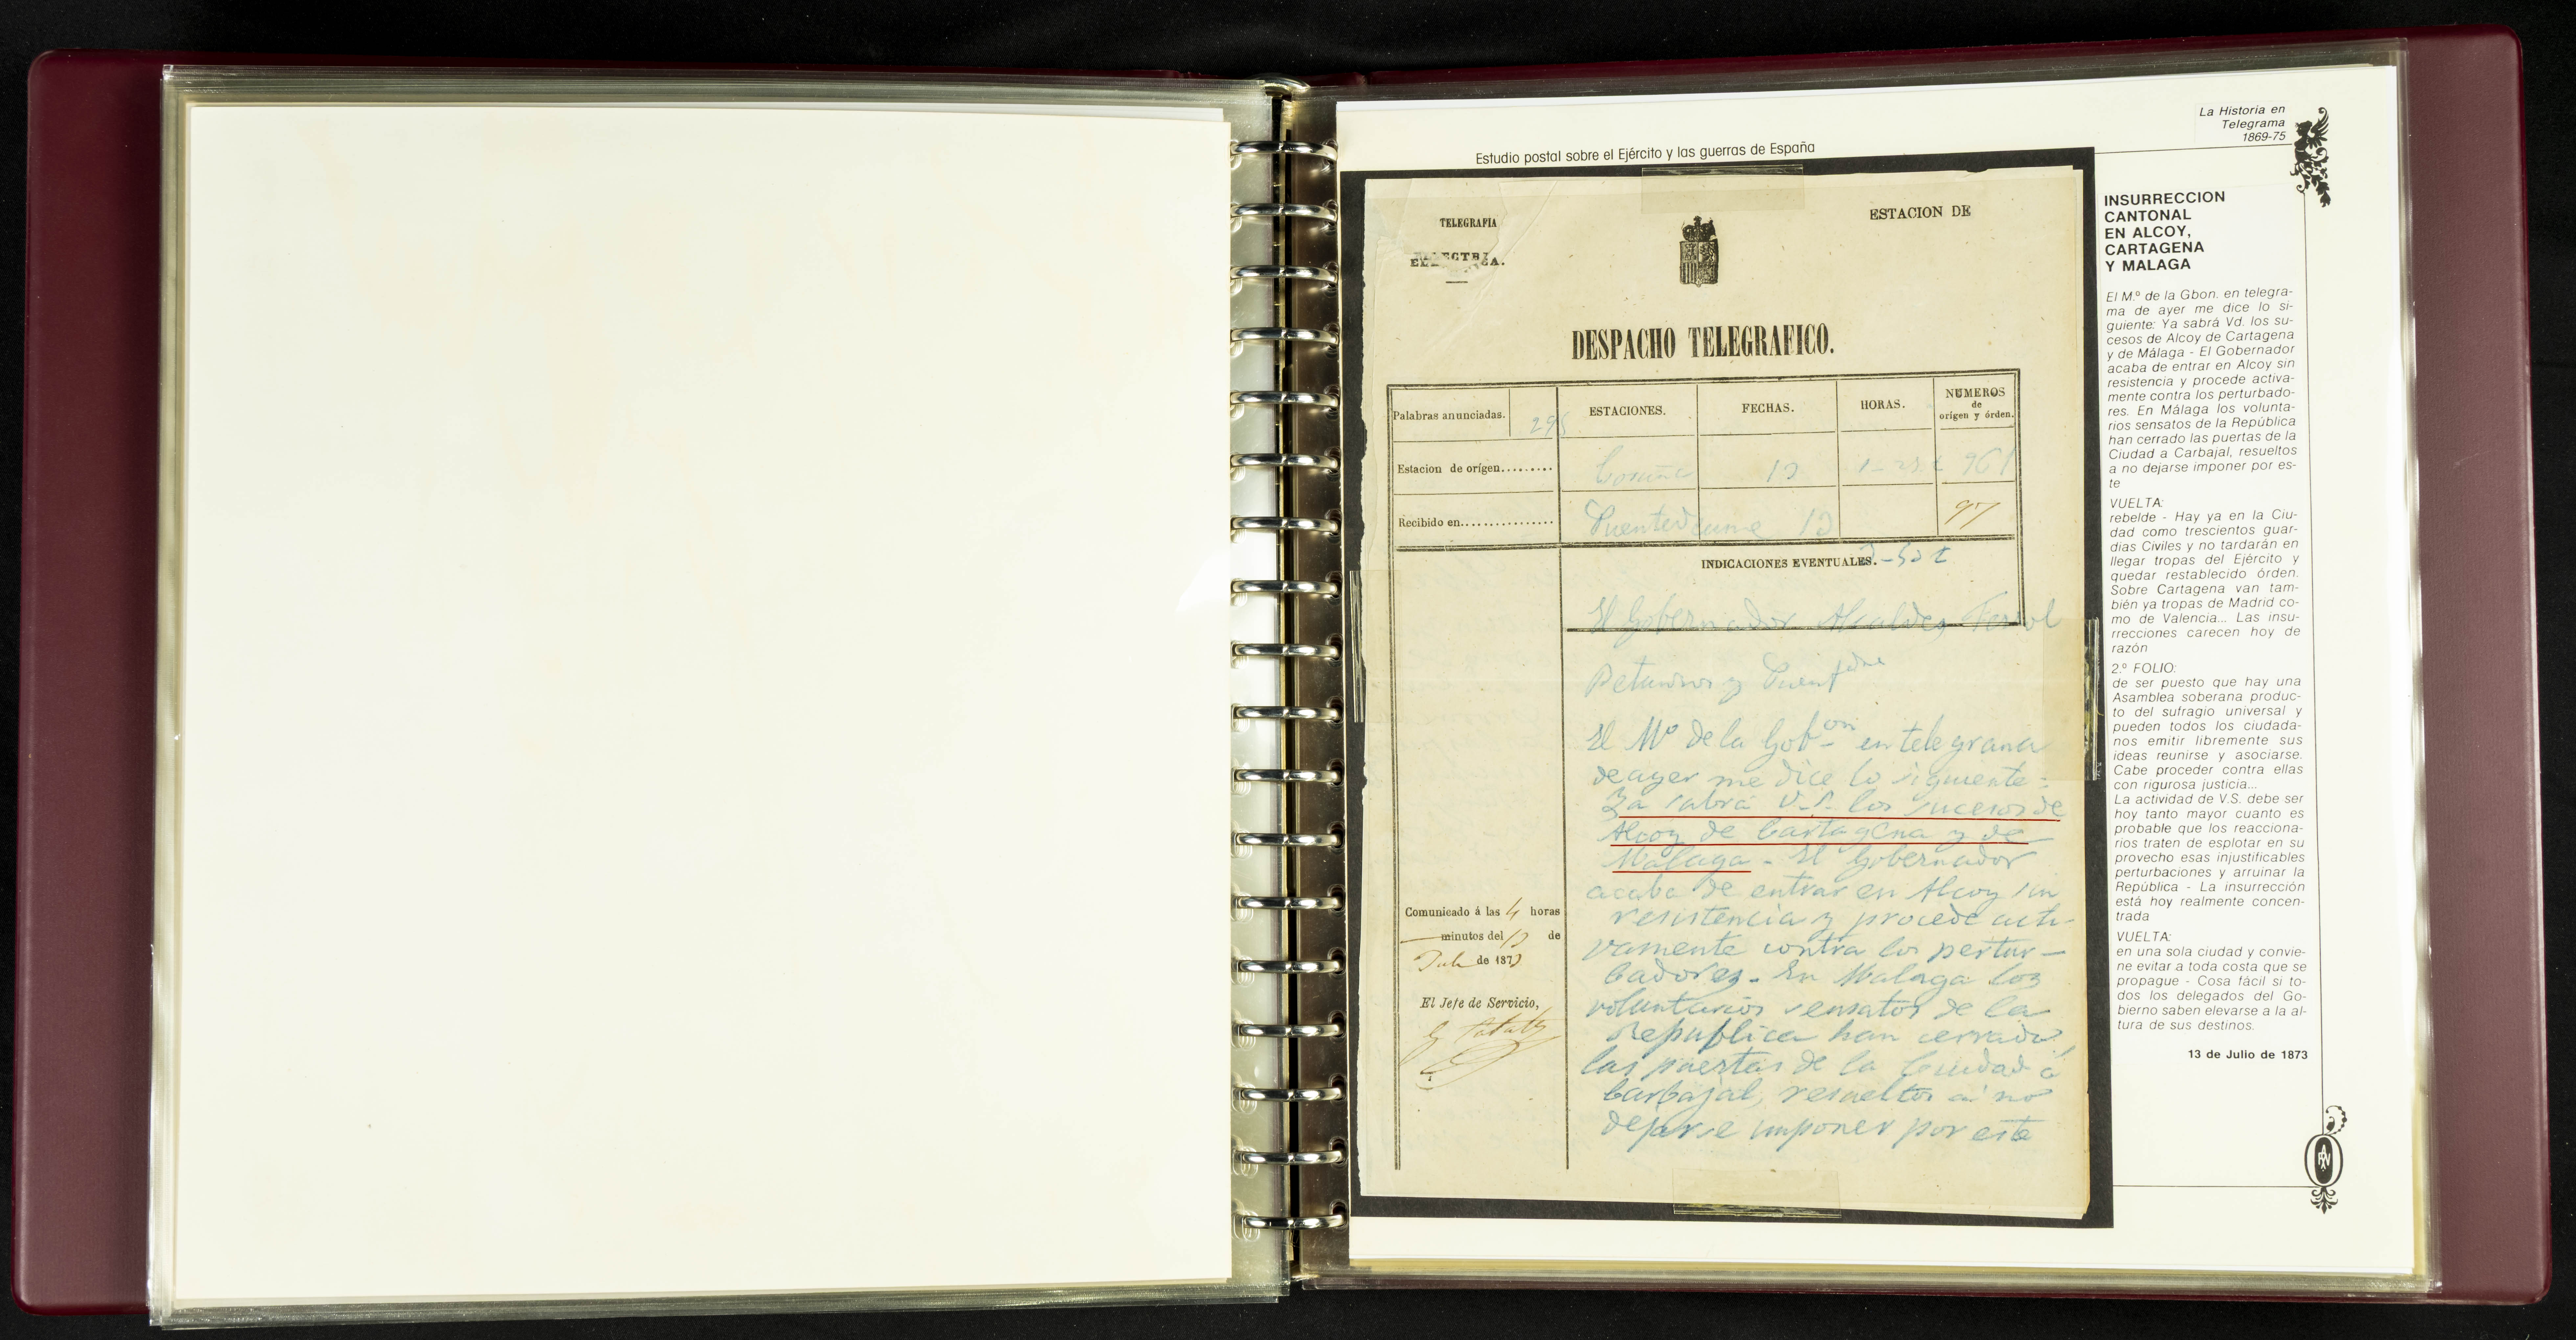 La Historia en
Telegrama
1869-75
Estudio postal sobre el Ejército y las guerras de España
TELEGRAFIA
ELECTRICA.
ESTACION DE
DESPACHO TELEGRAFICO.
Palabras anunciadas. 295
ESTACIONES.
FECHAS.
HORAS.
NÚMEROS
de
origen y órden.
Estacion de orígen.........
Coruña 13 961
Recibido en................
Puentedeume 13 97
INDICACIONES EVENTUALES.
El Gobernador Alcaldes Ferrol
Betanzos y
El Mº de la Gobon en telegrama
de ayer me dice lo siguiente:
Ya sabrá V.S. los sucesos de
Alcoy de Cartagena y de
Malaga - El Gobernador
acaba de entrar en Alcoy sin
resistencia y procede acti-
vamente contra los pertur-
badores - En Malaga los
voluntarios sensatos de la
Republica han cerrado
las puertas de la Ciudad á
Carbajal, resueltos á no
dejarse imponer por este
Comunicado á las 4 horas
minutos del 13 de
Julio de 1873
El Jefe de Servicio,
INSURRECCION
CANTONAL
EN ALCOY,
CARTAGENA
Y MALAGA
El M.º de la Gbon. en telegra-
ma de ayer me dice lo si-
guiente: Ya sabrá Vd. los su-
cesos de Alcoy de Cartagena
y de Málaga - El Gobernador
acaba de entrar en Alcoy sin
resistencia y procede activa-
mente contra los perturbado-
res. En Málaga los volunta-
rios sensatos de la República
han cerrado las puertas de la
Ciudad a Carbajal, resueltos
a no dejarse imponer por es-
te
VUELTA:
rebelde - Hay ya en la Ciu-
dad como trescientos guar-
dias Civiles y no tardarán en
llegar tropas del Ejército y
quedar restablecido órden.
Sobre Cartagena van tam-
bién ya tropas de Madrid co-
mo de Valencia... Las insu-
rrecciones carecen hoy de
razón
2.º FOLIO:
de ser puesto que hay una
Asamblea soberana produc-
to del sufragio universal y
pueden todos los ciudada-
nos emitir libremente sus
ideas reunirse y asociarse.
Cabe proceder contra ellas
con rigurosa justicia...
La actividad de V.S. debe ser
hoy tanto mayor cuanto es
probable que los reacciona-
rios traten de esplotar en su
provecho esas injustificables
perturbaciones y arruinar la
República - La insurrección
está hoy realmente concen-
trada
VUELTA:
en una sola ciudad y convie-
ne evitar a toda costa que se
propague - Cosa fácil si to-
dos los delegados del Go-
bierno saben elevarse a la al-
tura de sus destinos.
13 de Julio de 1873